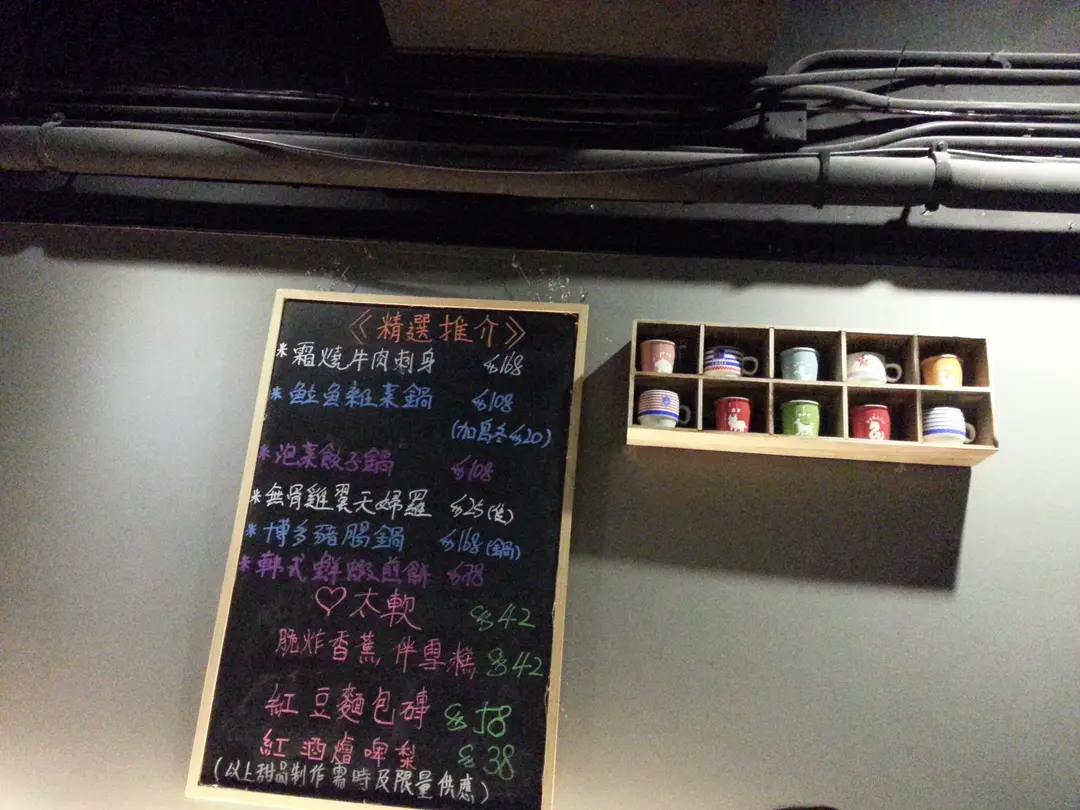 《精選推介》
*霜燒牛肉刺身 $168
*鮭魚雜菜鍋 $108
(加烏冬$20)
*泡菜餃子鍋 $108
*無骨雞翼天婦羅 $25(隻)
*博多豬腸鍋 $168(鍋)
*韓式鮮蝦煎餅 $78
♡太軟 $42
脆炸香蕉伴雪糕 $42
紅豆麵包磚 $58
紅酒燴啤梨 $38
(以上甜品制作需時及限量供應)